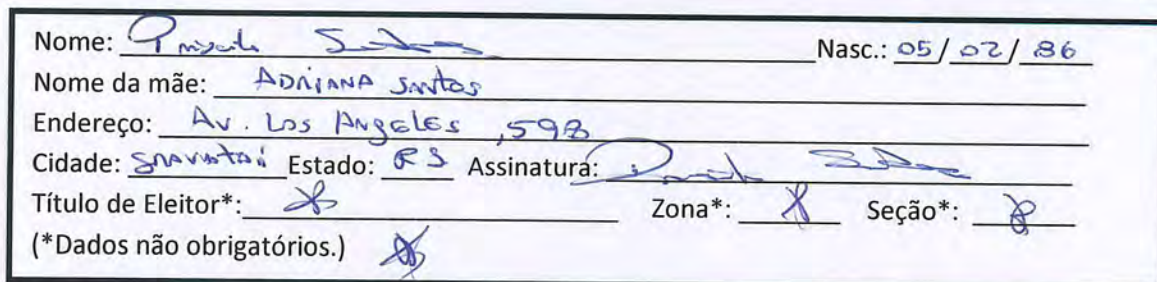 Nome: Priscila Santos Nasc.: 05/02/86
Nome da mãe: ADRIANA SANTOS
Endereço: Av. Los Angeles, 598
Cidade: Gravataí Estado: RS Assinatura:
Título de Eleitor*: Zona*: Seção*:
(*Dados não obrigatórios.)